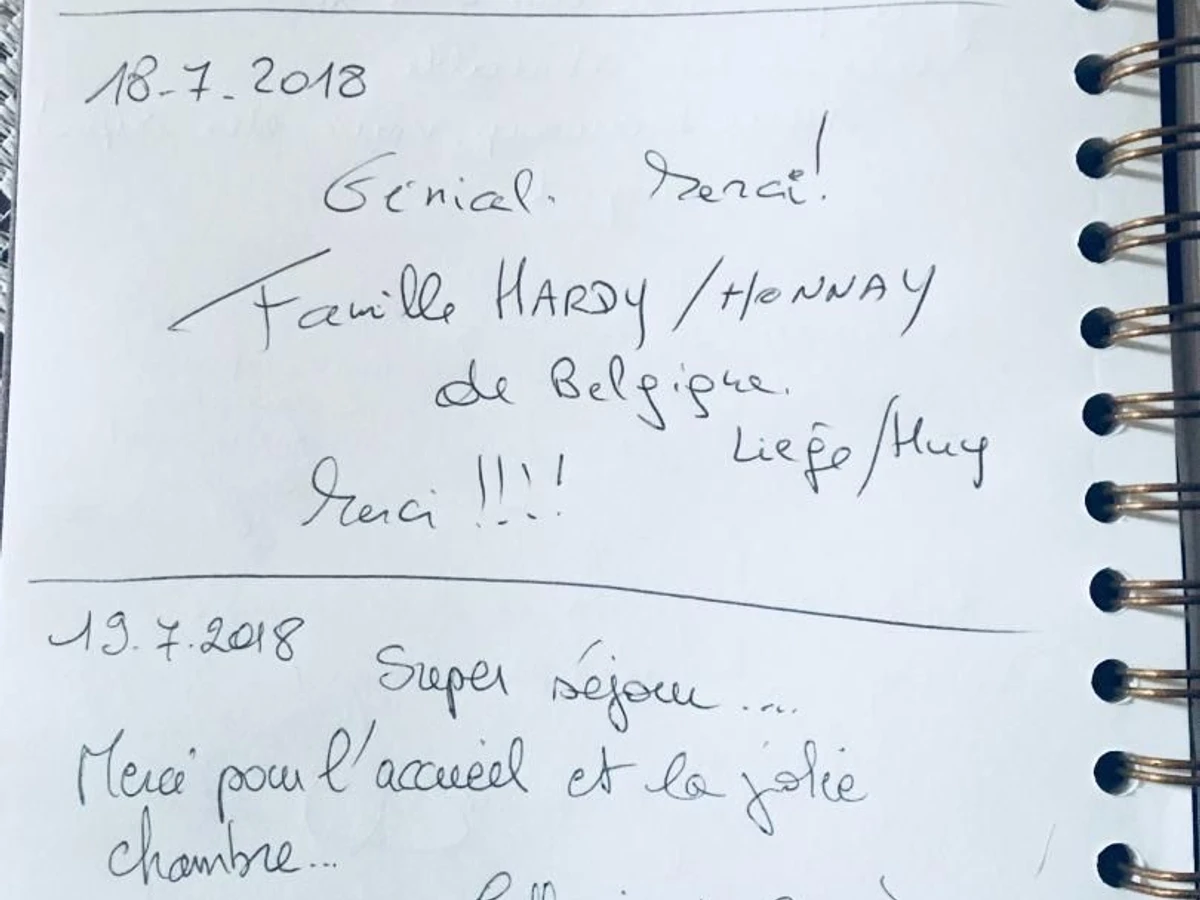 18-7-2018
Génial. Merci!
Famille HARDY / HONNAY
de Belgique.
Liège/Huy
Merci !!!!
19.7.2018
Super séjour....
Merci pour l'accueil et la jolie
chambre...